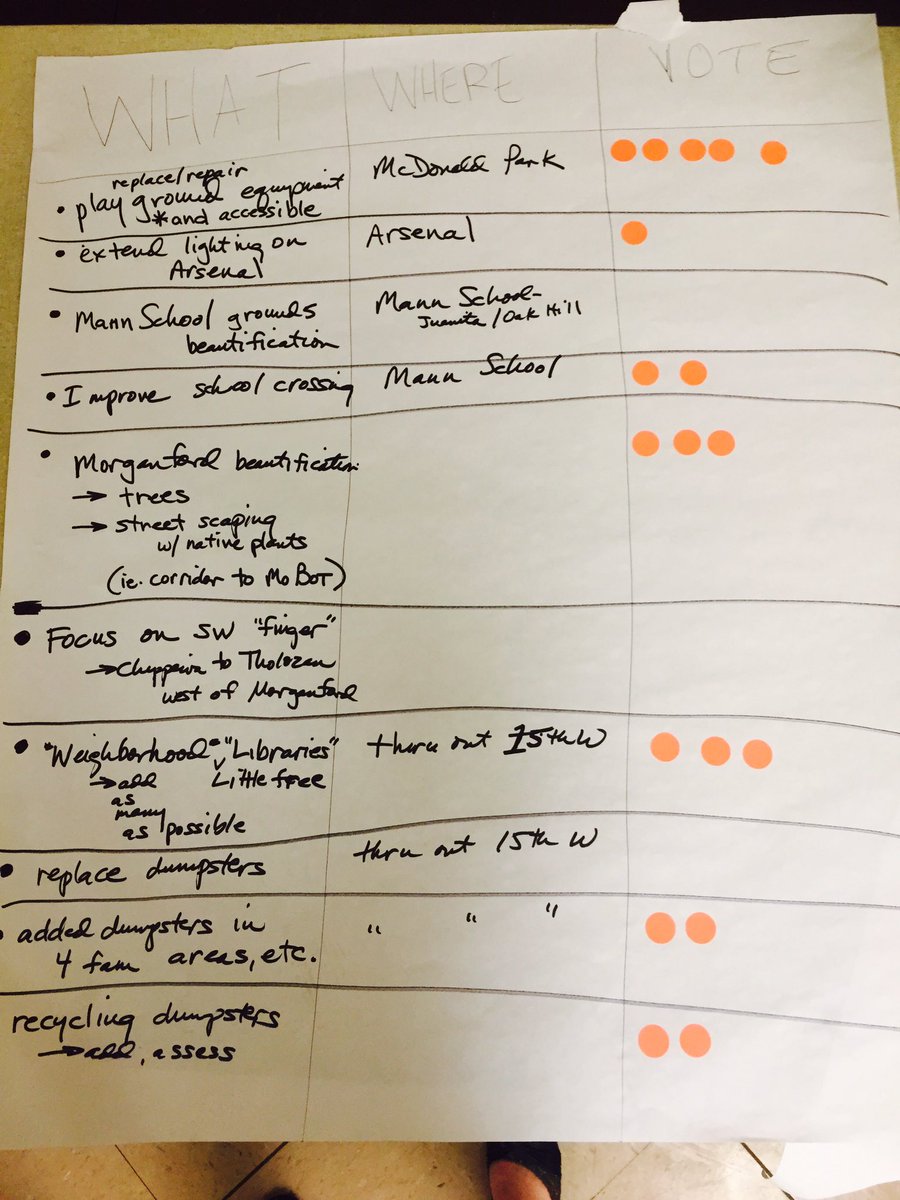 WHAT WHERE VOTE
replace/repair
• playground equipment McDonald Park
*and accessible
• extend lighting on Arsenal
Arsenal
• Mann School grounds Mann School-
beautification Juanita/Oak Hill
• Improve school crossing Mann School
• Morganford beautification
→ trees
→ street scaping
w/ native plants
(ie. corrider to MoBOT)
• Focus on SW "finger"
→ Chippewa to Tholozan
west of Morganford
• "Neighborhood "Libraries" thru out 15th W
→ add Little free
as
many
as possible
• replace dumpsters thru out 15th W
• added dumpsters in " " "
4 fam areas, etc.
recycling dumpsters
→ add, assess